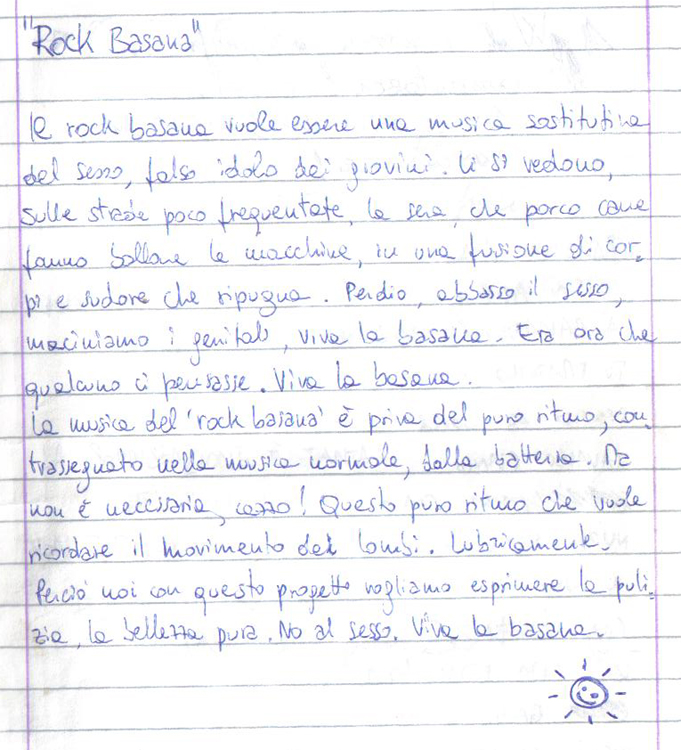 "Rock Basana"
Il rock basana vuole essere una musica sostitutiva
del sesso, falso idolo dei giovini. Li si vedono,
sulle strade poco frequentate, la sera, che porco cane
fanno ballare le macchine, in una fusione di cor-
pi e sudore che ripugna. Perdio, abbasso il sesso,
maciniamo i genitali, viva la basana. Era ora che
qualcuno ci pensasse. Viva la basana.
La musica del 'rock basana' è priva del puro ritmo, con-
trassegnato nella musica normale, dalla batteria. Ma
non è neccissaria, cazzo! Questo puro ritmo che vuole
ricordare il movimento dei lombi. Lubricamente.
Perciò noi con questo progetto vogliamo esprimere la puli-
zia, la bellezza pura. No al sesso. Viva la basana.